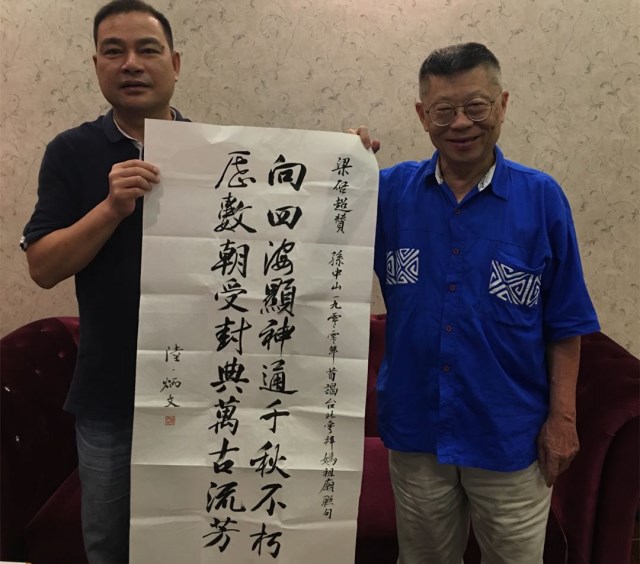 梁启超贊 孫中山一九零零年首謁台北參拜媽祖廟聯句
向四海顯神通千秋不朽
歷數朝受封典萬古流芳
陸·炳文